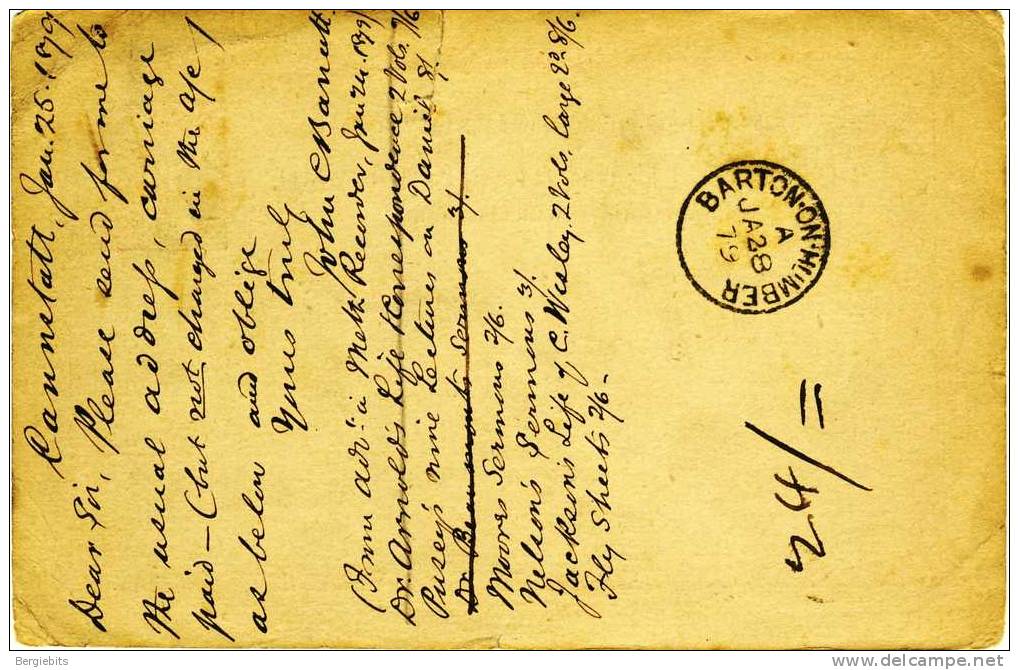 Cannstatt, Jan. 25. 1879
Dear Sir, Please send for me to
the usual address, carriage
paid – (but not charged in the a/c)
as below and oblige
Yours truly
John C Barratt
(From adt. in Meth. Recorder, Jan 24. 1879)
Dr. Arnold's Life & Correspondence 2 Vols. 7/6
Pusey's nine Lectures on Daniel 8/.
Dr Beaumont's Sermons 3/.
Moores Sermons 2/6.
Nelson's Sermons 3/
Jackson's Life of C. Wesley, 2 Vols, Large 8/6.
Fly Sheets 2/6-
BARTON-ON-HUMBER
A
JA 28
79
24/=
Bergiebits
www.delcampe.net